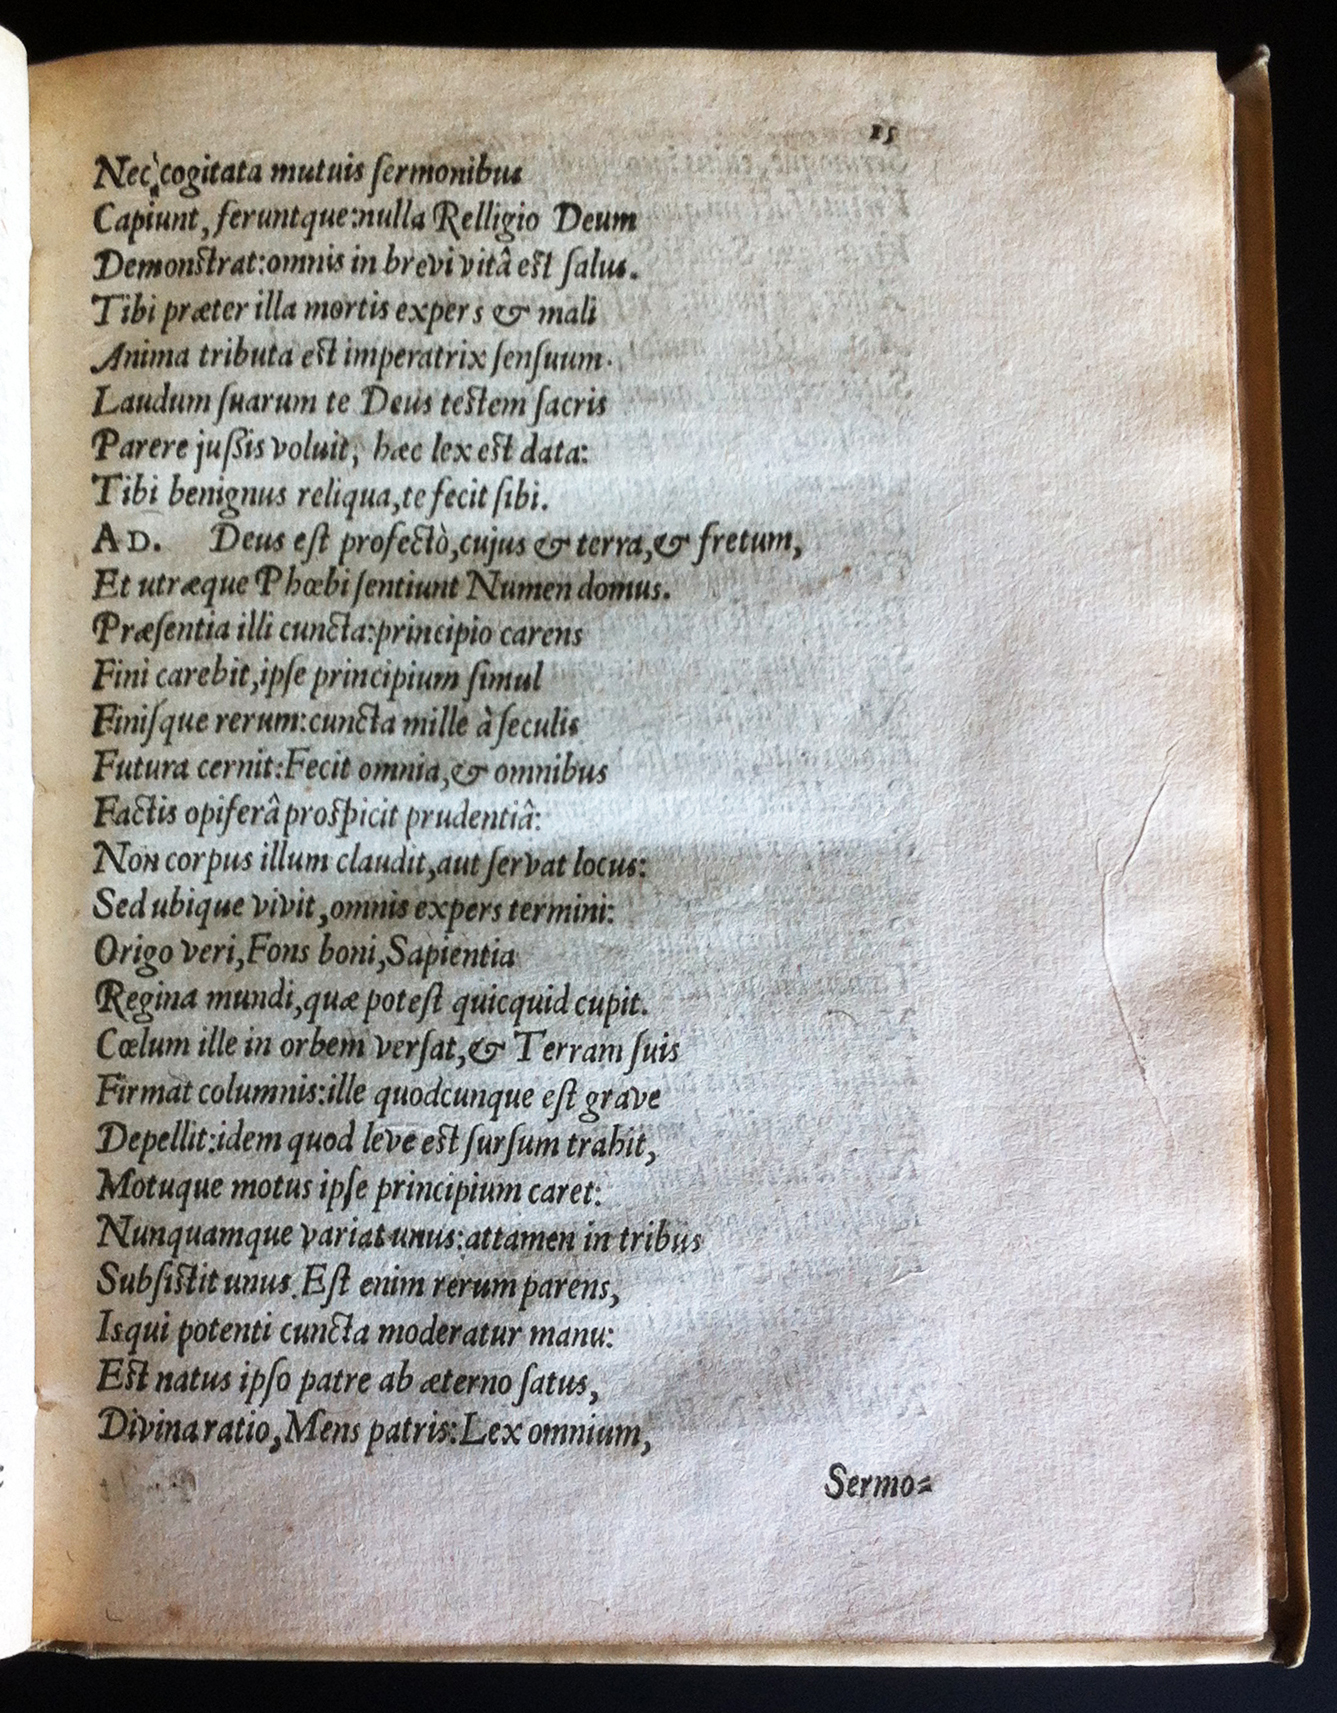 15
Nec cogitata mutuis ſermonibus
Capiunt, feruntque: nulla Relligio Deum
Demonſtrat: omnis in brevi vitâ eſt ſalus.
Tibi præter illa mortis expers & mali
Anima tributa eſt imperatrix ſenſuum.
Laudum ſuarum te Deus teſtem ſacris
Parere juſſis voluit, hæc lex eſt data:
Tibi benignus reliqua, te fecit ſibi.
AD. Deus eſt profectò, cujus & terra, & fretum,
Et utræque Phœbi ſentiunt Numen domus.
Præſentia illi cuncta: principio carens
Fini carebit, ipſe principium ſimul
Finiſque rerum: cuncta mille à ſeculis
Futura cernit: Fecit omnia, & omnibus
Factis opiferâ proſpicit prudentiâ:
Non corpus illum claudit, aut ſervat locus:
Sed ubique vivit, omnis expers termini:
Origo veri, Fons boni, Sapientia
Regina mundi, quæ poteſt quicquid cupit.
Cœlum ille in orbem verſat, & Terram ſuis
Firmat columnis: ille quodcunque eſt grave
Depellit: idem quod leve eſt ſurſum trahit,
Motuque motus ipſe principium caret:
Nunquamque variat unus: attamen in tribus
Subſiſtit unus. Eſt enim rerum parens,
Is qui potenti cuncta moderatur manu:
Eſt natus ipſo patre ab æterno ſatus,
Divina ratio, Mens patris: Lex omnium,
Sermo=